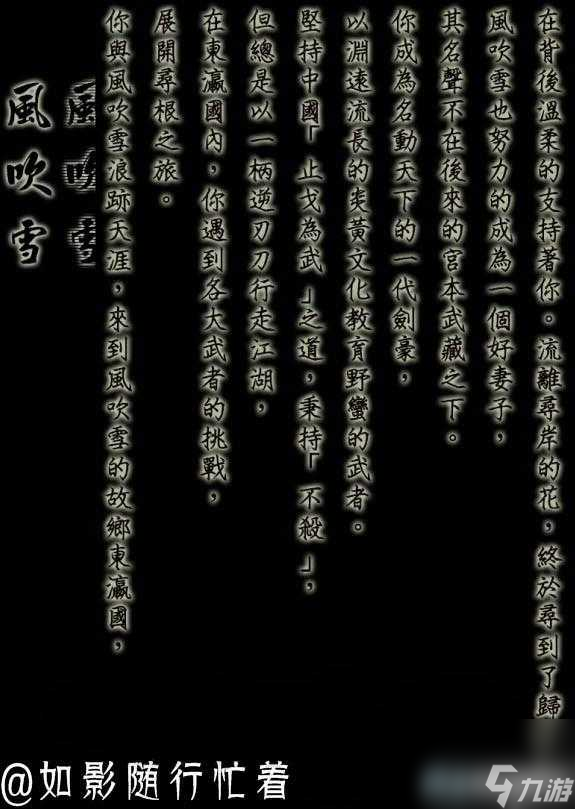 風吹雪
風吹雪
你與風吹雪浪跡天涯，來到風吹雪的故鄉東瀛國，
展開尋根之旅。
在東瀛國內，你遇到各大武者的挑戰，
但總是以一柄逆刃刀行走江湖，
堅持中國「止戈為武」之道，秉持「不殺」，
以淵遠流長的炎黃文化教育野蠻的武者。
你成為名動天下的一代劍豪，
其名聲不在後來的宮本武藏之下。
風吹雪也努力的成為一個好妻子，
在背後溫柔的支持著你。流離尋岸的花，終於尋到了歸
@如影随行忙着
九游